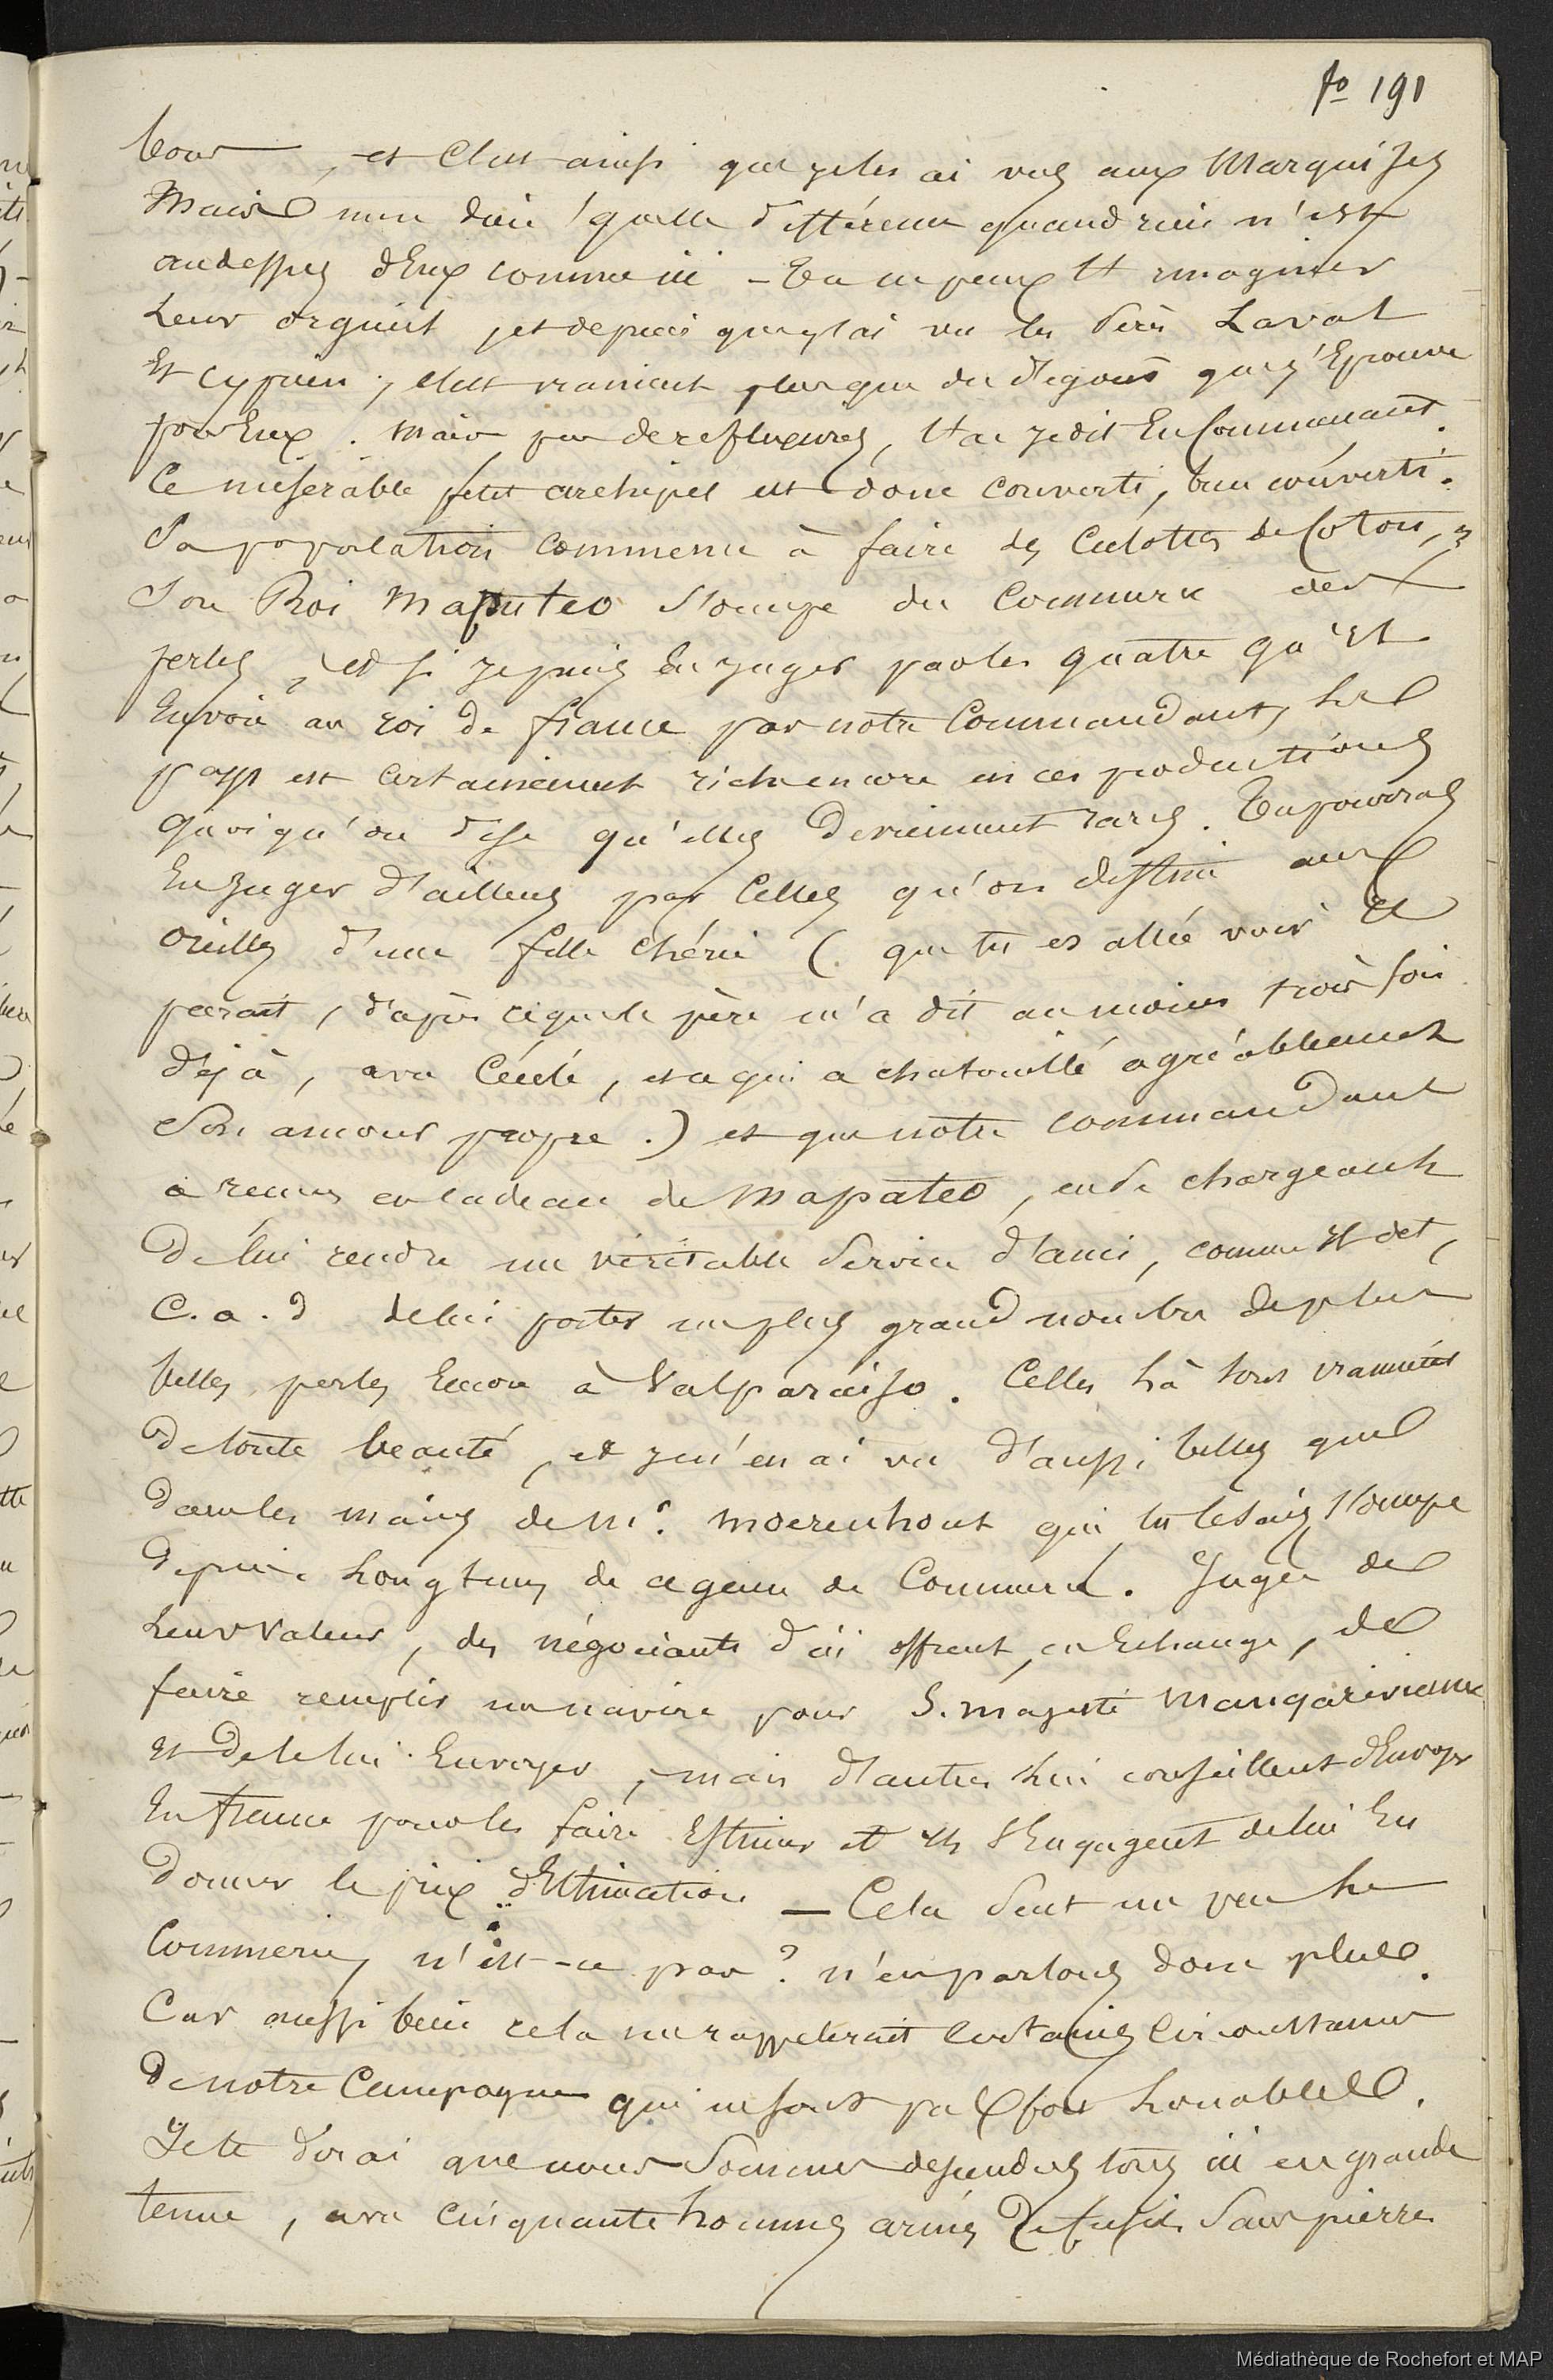 fo 191
bons, et c'est ainsi que je les ai vus aux Marquises
Mais mon dieu! quelle différence quand rien n'est
au dessus d'Eux comme ici - tu ne peux t'imaginer
Leur orgueil, et depuis que j'ai vu les Pères Laval
Et Cyprien, c'est vraiment plus que du dégout que j'Eprouve
pour Eux. Mais pas de reflexions, t'ai je dit En Commenant.
Ce miserable petit archipel est donc converti, bien converti.
Sa population commence à faire des Culottes de Coton, &
Son Roi Maputeo s'occupe du Commerce des
perles, et si je puis En juger par les quatre qu'Il
Envoie au roi de france par notre Commandant, le
pays est certainement riche encore en ces productions
quoiqu'on dise qu'elles deviennent rares. Tu pourras
En Juger d'ailleurs par Celles qu'on destine aux
oreilles d'une fille chérie (que tu es allée voir Il
parait, d'après ce que le père m'a dit au moins trois fois
déjà, avec Cécile, et ce qui a chatouillé agréablement
Son amour propre.) et que notre commandant
a reçues en Cadeau de Mapateo, en se chargeant
De lui rendre un véritable Service d'ami, comme Il dit,
C. a. d de lui porter un plus grand nombre de plus
belles perles Encore à Valparaiso. Celles là sont vraiment
De toute beauté, et je n'en ai vu d'aussi belles que
dans les mains de Mr. Moerenhout qui tu le sais s'occupe
Depuis Longtems de ce genre de Commerce. Juge de
Leur Valeur, des négociants d'ici offrent, en Echange, de
faire remplir un navire pour S. majesté Mangarévienne
Et de le lui Envoyer, mais d'autres lui conseillent d'Envoyer
En france pour les faire Estimer et Ils s'Engagent de lui En
Donner le prix d'Estimation — Cela Sent un peu le
Commerce, n'est-ce pas? n'en parlons donc plus.
Car aussi bien cela me rappelerait certaines circonstances
De notre Campagne qui ne sont pas fort Louables.
Je te dirai que nous Sommes descendus tous ici en grande
tenue, avec Cinquante hommes armés De fusils Sans pierres
Médiathèque de Rochefort et MAP